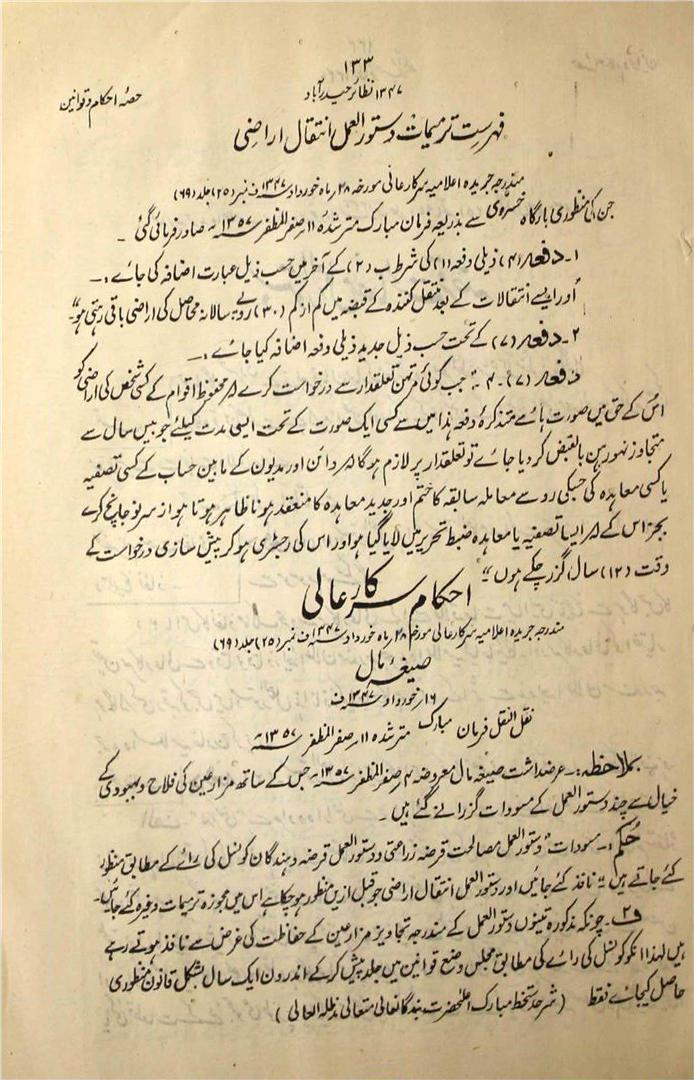 ۱۳۳
۱۳۴۷ نظائر حیدرآباد
حصہ احکام و قوانین
فہرست ترمیمات دستور العمل انتقال اراضی
مندرجہ جریدہ اعلامیہ سرکار عالی مورخہ ۲۸ ماہ خورداد ۱۳۴۷ ف نمبر (۲۵) جلد (۶۹)
جن کی منظوری بارگاہ خسروی سے بذریعہ فرمان مبارک مترشدہ ۱۱ صفر المظفر ۱۳۵۷ھ صادر فرمائی گئی ۔
۱۔ دفعہ (۴) ذیلی دفعہ (۱) کی شرط ب (۲) کے آخر میں حسب ذیل عبارت اضافہ کی جائے :۔
"اور ایسے انتقالات کے بعد منتقل کنندہ کے قبضہ میں کم از کم (۳۰) روپے سالانہ محاصل کی اراضی باقی رہتی ہو"
۲۔ دفعہ (۷) کے تحت حسب ذیل جدید ذیلی دفعہ اضافہ کیا جائے :۔
دفعہ (۷)۔ ۴ :۔ جب کوئی مرتہن تعلقدار سے درخواست کرے کہ محفوظ اقوام کے کسی شخص کی اراضی کو
اس کے حق میں صورت ہائے متذکرہ دفعہ ہذا میں سے کسی ایک صورت کے تحت ایسی مدت کیلئے جو بیس سال سے
متجاوز نہو رہن بالقبض کر دیا جائے تو تعلقدار پر لازم ہوگا کہ دائن اور مدیون کے مابین حساب کے کسی تصفیہ
یا کسی معاہدہ کی جسکی رو سے معاملہ سابقہ کا ختم اور جدید معاہدہ کا منعقد ہونا ظاہر ہوتا ہو از سر نو جانچ کرے
بجز اس کے کہ ایسا تصفیہ یا معاہدہ ضبط تحریر میں لایا گیا ہو اور اس کی رجسٹری ہو کر پیش سازی درخواست کے
وقت (۱۲) سال گزر چکے ہوں"
احکام سرکار عالی
مندرجہ جریدہ اعلامیہ سرکار عالی مورخہ ۲۸ ماہ خورداد ۱۳۴۷ ف نمبر (۲۵) جلد (۶۹)
صیغہ مال
۱۶ خورداد ۱۳۴۷ ف
نقل النقل فرمان مبارک مترشدہ ۱۱ صفر المظفر ۱۳۵۷ھ
بملاحظہ :۔ عرضداشت صیغہ مال معروضہ ۴ صفر المظفر ۱۳۵۷ھ جس کے ساتھ مزارعین کی فلاح و بہبودی کے
خیال سے چند دستور العمل کے مسودات گزرانے گئے ہیں ۔
حکم :۔ مسودات "دستور العمل مصالحت قرضہ زراعتی و دستور العمل قرضہ دہندگان کونسل کی رائے کے مطابق منظور
کئے جاتے ہیں" نافذ کئے جائیں اور دستور العمل انتقال اراضی جو قبل ازیں منظور ہو چکا ہے اس میں مجوزہ ترمیمات وغیرہ کئے جائیں۔
ف۲۔ چونکہ مذکورہ تینوں دستور العمل کے مندرجہ تجاویز مزارعین کے حفاظت کی غرض سے نافذ ہوتے رہے
ہیں لہذا انکو کونسل کی رائے کی مطابق مجلس وضع قوانین میں جلد پیش کر کے اندرون ایک سال بشکل قانون منظوری
حاصل کیجائے فقط (شرحدستخط مبارک اعلٰحضرت بندگانعالی متعالی مدظلہ العالی)